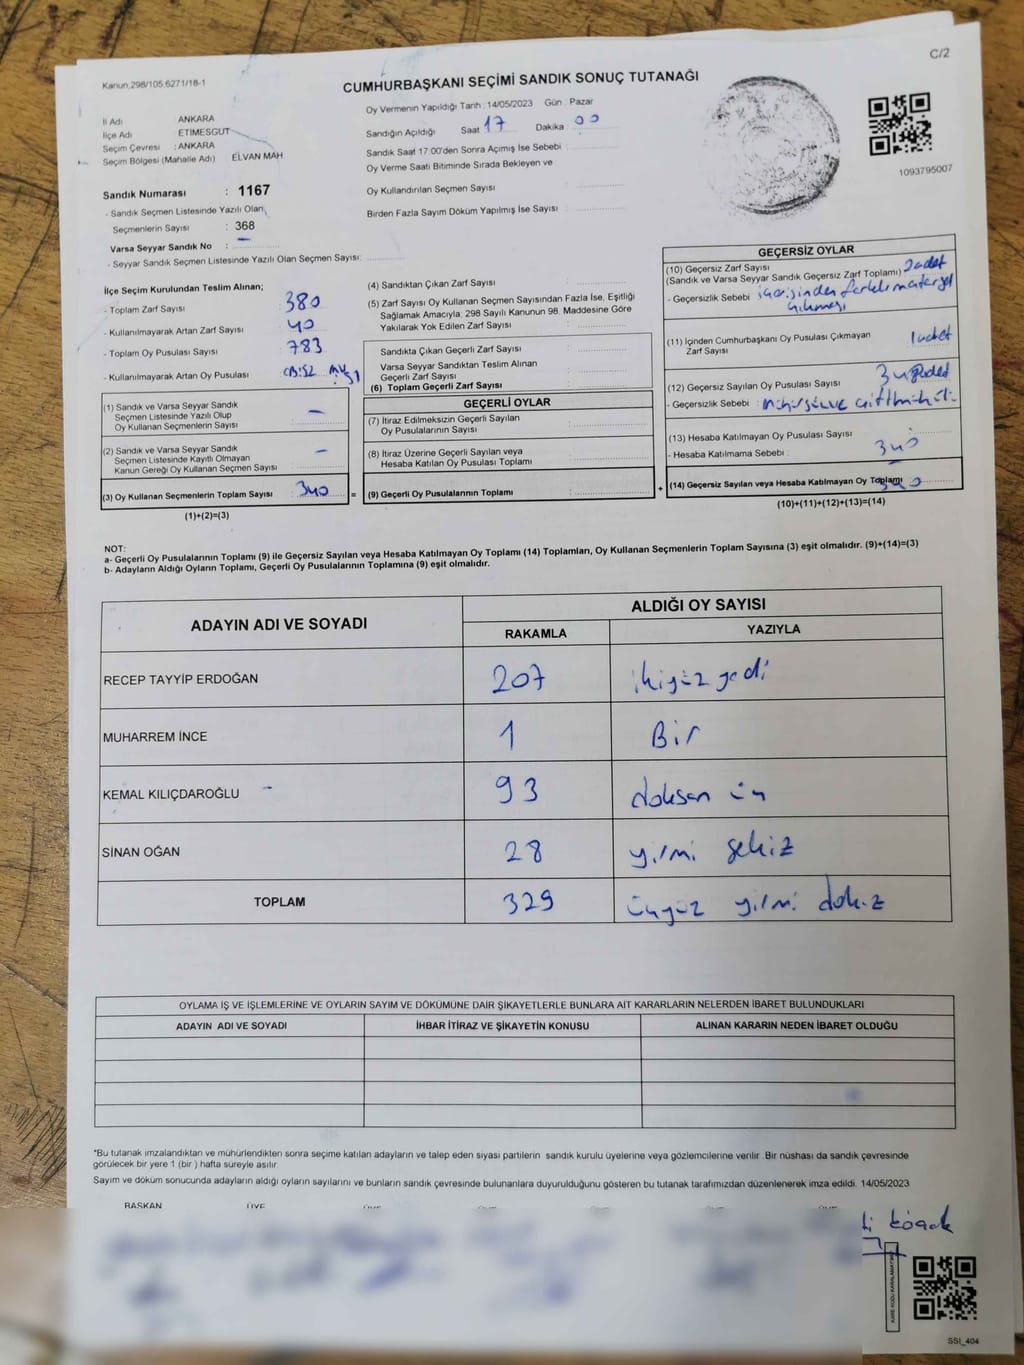 C/2
Kanun.298/105.6271/18-1
CUMHURBAŞKANI SEÇİMİ SANDIK SONUÇ TUTANAĞI
İl Adı ANKARA
İlçe Adı ETİMESGUT
Seçim Çevresi : ANKARA
Seçim Bölgesi (Mahalle Adı) ELVAN MAH
Sandık Numarası : 1167
- Sandık Seçmen Listesinde Yazılı Olan
Seçmenlerin Sayısı : 368
Varsa Seyyar Sandık No : —
- Seyyar Sandık Seçmen Listesinde Yazılı Olan Seçmen Sayısı:
Oy Vermenin Yapıldığı Tarih : 14/05/2023 Gün : Pazar
Sandığın Açıldığı Saat 17 Dakika 00
Sandık Saat 17:00'den Sonra Açımış İse Sebebi :
Oy Verme Saati Bitiminde Sırada Bekleyen ve
Oy Kullandırılan Seçmen Sayısı :
Birden Fazla Sayım Döküm Yapılmış İse Sayısı :
1093795007
İlçe Seçim Kurulundan Teslim Alınan;
- Toplam Zarf Sayısı : 380
- Kullanılmayarak Artan Zarf Sayısı : 40
- Toplam Oy Pusulası Sayısı : 783
- Kullanılmayarak Artan Oy Pusulası : CB:52
(1) Sandık ve Varsa Seyyar Sandık
Seçmen Listesinde Yazılı Olup
Oy Kullanan Seçmenlerin Sayısı : —
(2) Sandık ve Varsa Seyyar Sandık
Seçmen Listesinde Kayıtlı Olmayan
Kanun Gereği Oy Kullanan Seçmen Sayısı : —
(3) Oy Kullanan Seçmenlerin Toplam Sayısı : 340
(1)+(2)=(3)
=
(4) Sandıktan Çıkan Zarf Sayısı :
(5) Zarf Sayısı Oy Kullanan Seçmen Sayısından Fazla İse, Eşitliği
Sağlamak Amacıyla, 298 Sayılı Kanunun 98. Maddesine Göre
Yakılarak Yok Edilen Zarf Sayısı :
Sandıkta Çıkan Geçerli Zarf Sayısı :
Varsa Seyyar Sandıktan Teslim Alınan
Geçerli Zarf Sayısı :
(6) Toplam Geçerli Zarf Sayısı :
GEÇERLİ OYLAR
(7) İtiraz Edilmeksizin Geçerli Sayılan
Oy Pusulalarının Sayısı :
(8) İtiraz Üzerine Geçerli Sayılan veya
Hesaba Katılan Oy Pusulası Toplamı :
(9) Geçerli Oy Pusulalarının Toplamı :
+
GEÇERSİZ OYLAR
(10) Geçersiz Zarf Sayısı
(Sandık ve Varsa Seyyar Sandık Geçersiz Zarf Toplamı)
- Geçersizlik Sebebi : içerisinden farklı materyal
çıkması
(11) İçinden Cumhurbaşkanı Oy Pusulası Çıkmayan
Zarf Sayısı : 1 adet
(12) Geçersiz Sayılan Oy Pusulası Sayısı :
- Geçersizlik Sebebi : mühürsüz ve çift mühürlü
(13) Hesaba Katılmayan Oy Pusulası Sayısı :
- Hesaba Katılmama Sebebi : 340
(14) Geçersiz Sayılan veya Hesaba Katılmayan Oy Toplamı
(10)+(11)+(12)+(13)=(14)
NOT:
a- Geçerli Oy Pusulalarının Toplamı (9) ile Geçersiz Sayılan veya Hesaba Katılmayan Oy Toplamı (14) Toplamları, Oy Kullanan Seçmenlerin Toplam Sayısına (3) eşit olmalıdır. (9)+(14)=(3)
b- Adayların Aldığı Oyların Toplamı, Geçerli Oy Pusulalarının Toplamına (9) eşit olmalıdır.
ADAYIN ADI VE SOYADI ALDIĞI OY SAYISI
RAKAMLA YAZIYLA
RECEP TAYYİP ERDOĞAN 207 ikiyüz yedi
MUHARREM İNCE 1 Bir
KEMAL KILIÇDAROĞLU 93 doksan üç
SİNAN OĞAN 28 yirmi sekiz
TOPLAM 329 üçyüz yirmi dokuz
OYLAMA İŞ VE İŞLEMLERİNE VE OYLARIN SAYIM VE DÖKÜMÜNE DAİR ŞİKAYETLERLE BUNLARA AİT KARARLARIN NELERDEN İBARET BULUNDUKLARI
ADAYIN ADI VE SOYADI İHBAR İTİRAZ VE ŞİKAYETİN KONUSU ALINAN KARARIN NEDEN İBARET OLDUĞU
*Bu tutanak imzalandıktan ve mühürlendikten sonra seçime katılan adayların ve talep eden siyasi partilerin sandık kurulu üyelerine veya gözlemcilerine verilir. Bir nüshası da sandık çevresinde
görülecek bir yere 1 (bir ) hafta süreyle asılır.
Sayım ve döküm sonucunda adayların aldığı oyların sayılarını ve bunların sandık çevresinde bulunanlara duyurulduğunu gösteren bu tutanak tarafımızdan düzenlenerek imza edildi. 14/05/2023
BAŞKAN ÜYE
KARE KODU KARALAMAYINIZ
SSI_404